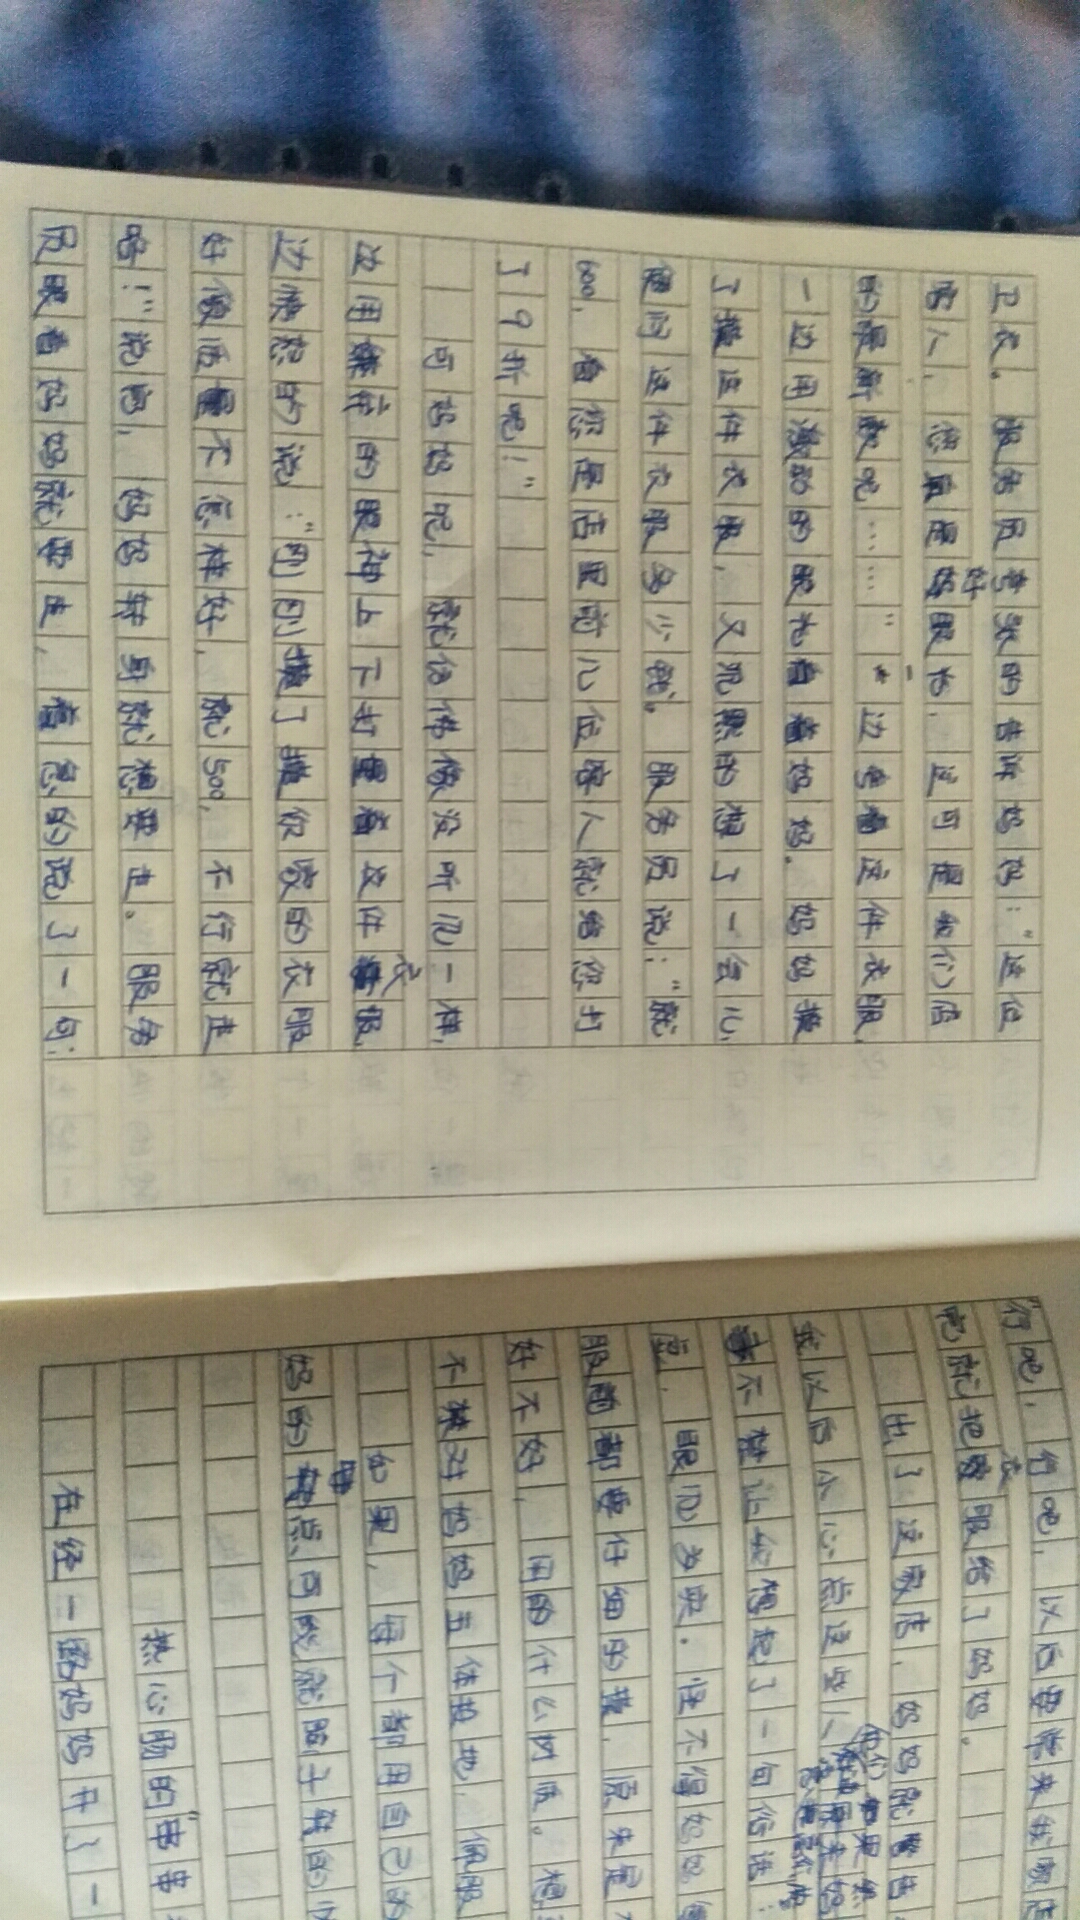 卫衣。服务员夸张的告诉妈妈："这位
客人，您真是好眼光，这可是我们店
的最新款呢……"一边夸着这件衣服，
一边用激动的眼光看着妈妈。妈妈摸
了摸这件衣服，又犹豫的想了一会儿，
便问这件衣服多少钱。服务员说："就
600，看您是店里前几位客人就给您打
了9折吧！"
可妈妈呢，就仿佛像没听见一样，
边用嫌弃的眼神上下打量着这件衣服，
边愤怒的说："刚刚摸了摸你家的衣服
好像质量不怎样好，就500，不行就走
啥！"说完，妈妈转身就想要走。服务
员眼看妈妈就要走，着急的说了一句：
"行吧，行吧，以后要常来我家店
吧就把衣服给了妈妈。
出了这家店，妈妈就警告
我以后小心点这些人
不禁让我想起了一句俗话：
眼见为实。怪不得妈妈
服随都要仔细的摸，原来是
好不好，用的什么材质。想
不禁对妈妈五体投地，佩服
如果，每个都用自己的
妈的 点，可能就踏上钱的
热心肠的"审
在经一路妈妈开了一